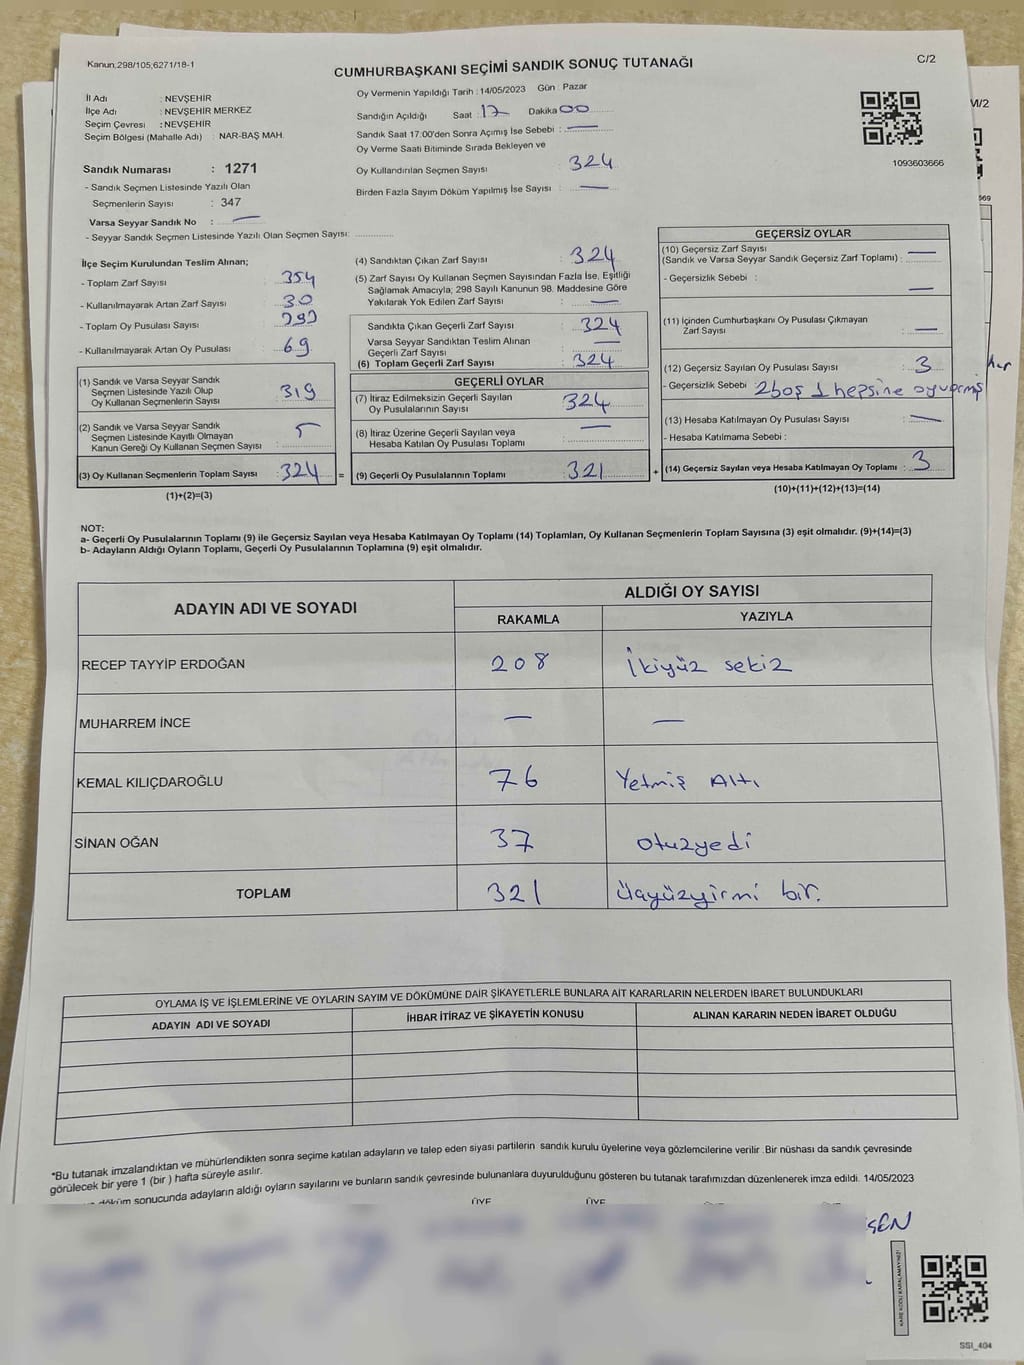 Kanun,298/105;6271/18-1
C/2
CUMHURBAŞKANI SEÇİMİ SANDIK SONUÇ TUTANAĞI
İl Adı : NEVŞEHİR
İlçe Adı : NEVŞEHİR MERKEZ
Seçim Çevresi : NEVŞEHİR
Seçim Bölgesi (Mahalle Adı) : NAR-BAŞ MAH.
Sandık Numarası : 1271
- Sandık Seçmen Listesinde Yazılı Olan
Seçmenlerin Sayısı : 347
Varsa Seyyar Sandık No : —
- Seyyar Sandık Seçmen Listesinde Yazılı Olan Seçmen Sayısı:
Oy Vermenin Yapıldığı Tarih : 14/05/2023 Gün : Pazar
Sandığın Açıldığı Saat : 17 Dakika 00
Sandık Saat 17:00'den Sonra Açımış İse Sebebi : —
Oy Verme Saati Bitiminde Sırada Bekleyen ve
Oy Kullandırılan Seçmen Sayısı : 324
Birden Fazla Sayım Döküm Yapılmış İse Sayısı : —
1093603666
M/2
İlçe Seçim Kurulundan Teslim Alınan;
- Toplam Zarf Sayısı : 354
- Kullanılmayarak Artan Zarf Sayısı : 30
- Toplam Oy Pusulası Sayısı :
- Kullanılmayarak Artan Oy Pusulası : 69
(1) Sandık ve Varsa Seyyar Sandık
Seçmen Listesinde Yazılı Olup
Oy Kullanan Seçmenlerin Sayısı : 319
(2) Sandık ve Varsa Seyyar Sandık
Seçmen Listesinde Kayıtlı Olmayan
Kanun Gereği Oy Kullanan Seçmen Sayısı : 5
(3) Oy Kullanan Seçmenlerin Toplam Sayısı : 324 =
(1)+(2)=(3)
(4) Sandıktan Çıkan Zarf Sayısı : 324
(5) Zarf Sayısı Oy Kullanan Seçmen Sayısından Fazla İse, Eşitliği
Sağlamak Amacıyla, 298 Sayılı Kanunun 98. Maddesine Göre
Yakılarak Yok Edilen Zarf Sayısı : —
Sandıkta Çıkan Geçerli Zarf Sayısı : 324
Varsa Seyyar Sandıktan Teslim Alınan
Geçerli Zarf Sayısı : —
(6) Toplam Geçerli Zarf Sayısı : 324
GEÇERLİ OYLAR
(7) İtiraz Edilmeksizin Geçerli Sayılan
Oy Pusulalarının Sayısı : 324
(8) İtiraz Üzerine Geçerli Sayılan veya
Hesaba Katılan Oy Pusulası Toplamı : —
(9) Geçerli Oy Pusulalarının Toplamı : 321 +
GEÇERSİZ OYLAR
(10) Geçersiz Zarf Sayısı
(Sandık ve Varsa Seyyar Sandık Geçersiz Zarf Toplamı) : —
- Geçersizlik Sebebi : —
(11) İçinden Cumhurbaşkanı Oy Pusulası Çıkmayan
Zarf Sayısı : —
(12) Geçersiz Sayılan Oy Pusulası Sayısı : 3
- Geçersizlik Sebebi 2 boş 1 hepsine oy vermiş
(13) Hesaba Katılmayan Oy Pusulası Sayısı : —
- Hesaba Katılmama Sebebi :
(14) Geçersiz Sayılan veya Hesaba Katılmayan Oy Toplamı : 3
(10)+(11)+(12)+(13)=(14)
NOT:
a- Geçerli Oy Pusulalarının Toplamı (9) ile Geçersiz Sayılan veya Hesaba Katılmayan Oy Toplamı (14) Toplamları, Oy Kullanan Seçmenlerin Toplam Sayısına (3) eşit olmalıdır. (9)+(14)=(3)
b- Adayların Aldığı Oyların Toplamı, Geçerli Oy Pusulalarının Toplamına (9) eşit olmalıdır.
ADAYIN ADI VE SOYADI
ALDIĞI OY SAYISI
RAKAMLA YAZIYLA
RECEP TAYYİP ERDOĞAN 208 İkiyüz sekiz
MUHARREM İNCE — —
KEMAL KILIÇDAROĞLU 76 Yetmiş Altı
SİNAN OĞAN 37 Otuzyedi
TOPLAM 321 Üçyüzyirmi bir.
OYLAMA İŞ VE İŞLEMLERİNE VE OYLARIN SAYIM VE DÖKÜMÜNE DAİR ŞİKAYETLERLE BUNLARA AİT KARARLARIN NELERDEN İBARET BULUNDUKLARI
ADAYIN ADI VE SOYADI İHBAR İTİRAZ VE ŞİKAYETİN KONUSU ALINAN KARARIN NEDEN İBARET OLDUĞU
*Bu tutanak imzalandıktan ve mühürlendikten sonra seçime katılan adayların ve talep eden siyasi partilerin sandık kurulu üyelerine veya gözlemcilerine verilir .Bir nüshası da sandık çevresinde
görülecek bir yere 1 (bir ) hafta süreyle asılır.
döküm sonucunda adayların aldığı oyların sayılarını ve bunların sandık çevresinde bulunanlara duyurulduğunu gösteren bu tutanak tarafımızdan düzenlenerek imza edildi. 14/05/2023
ÜYE ÜYE
ŞEN
KARE KODU KARALAMAYINIZ!
SSI_404